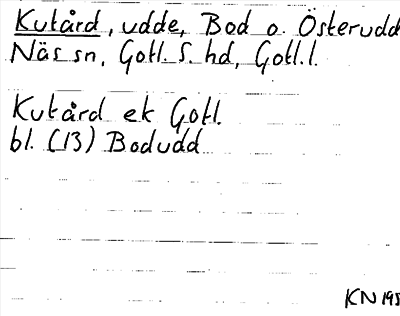 Kutård, udde, Bod o. Österudd
Näs sn, Gotl. S. hd, Gotl. l.
Kutård ek Gotl.
bl. (13) Bodudd
KN 195